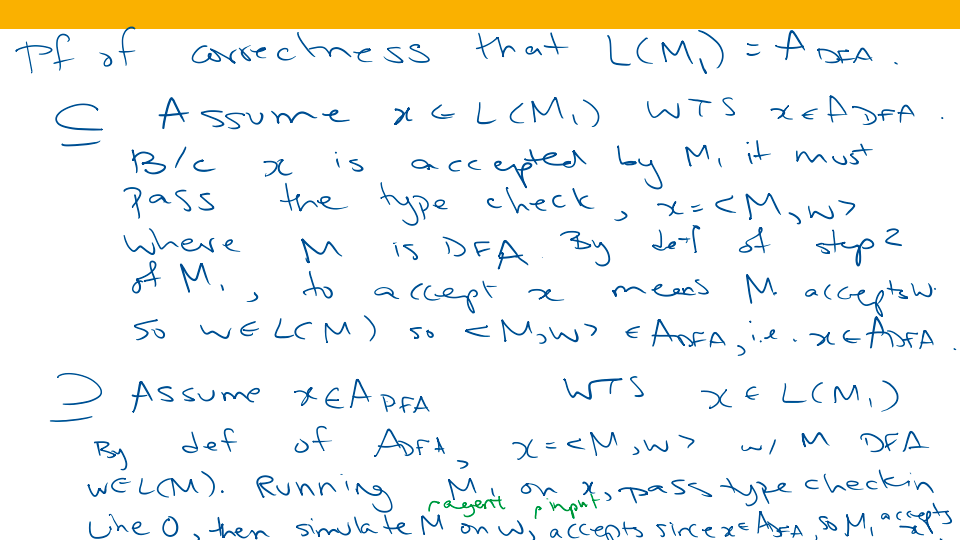 Pf of correctness that L(M₁) = A_DFA.
⊆ Assume x ∈ L(M₁) WTS x ∈ A_DFA.
B/c x is accepted by M₁ it must
pass the type check, x = <M, w>
where M is DFA. By def of step 2
of M₁, to accept x means M accepts w.
so w ∈ L(M) so <M, w> ∈ A_DFA, i.e. x ∈ A_DFA.
⊇ Assume x ∈ A_DFA WTS x ∈ L(M₁)
By def of A_DFA, x = <M, w> w/ M DFA
w ∈ L(M). Running M₁ on x, pass type check in
agent input
line 0, then simulate M on w, accepts since x ∈ A_DFA, so M₁ accepts x.